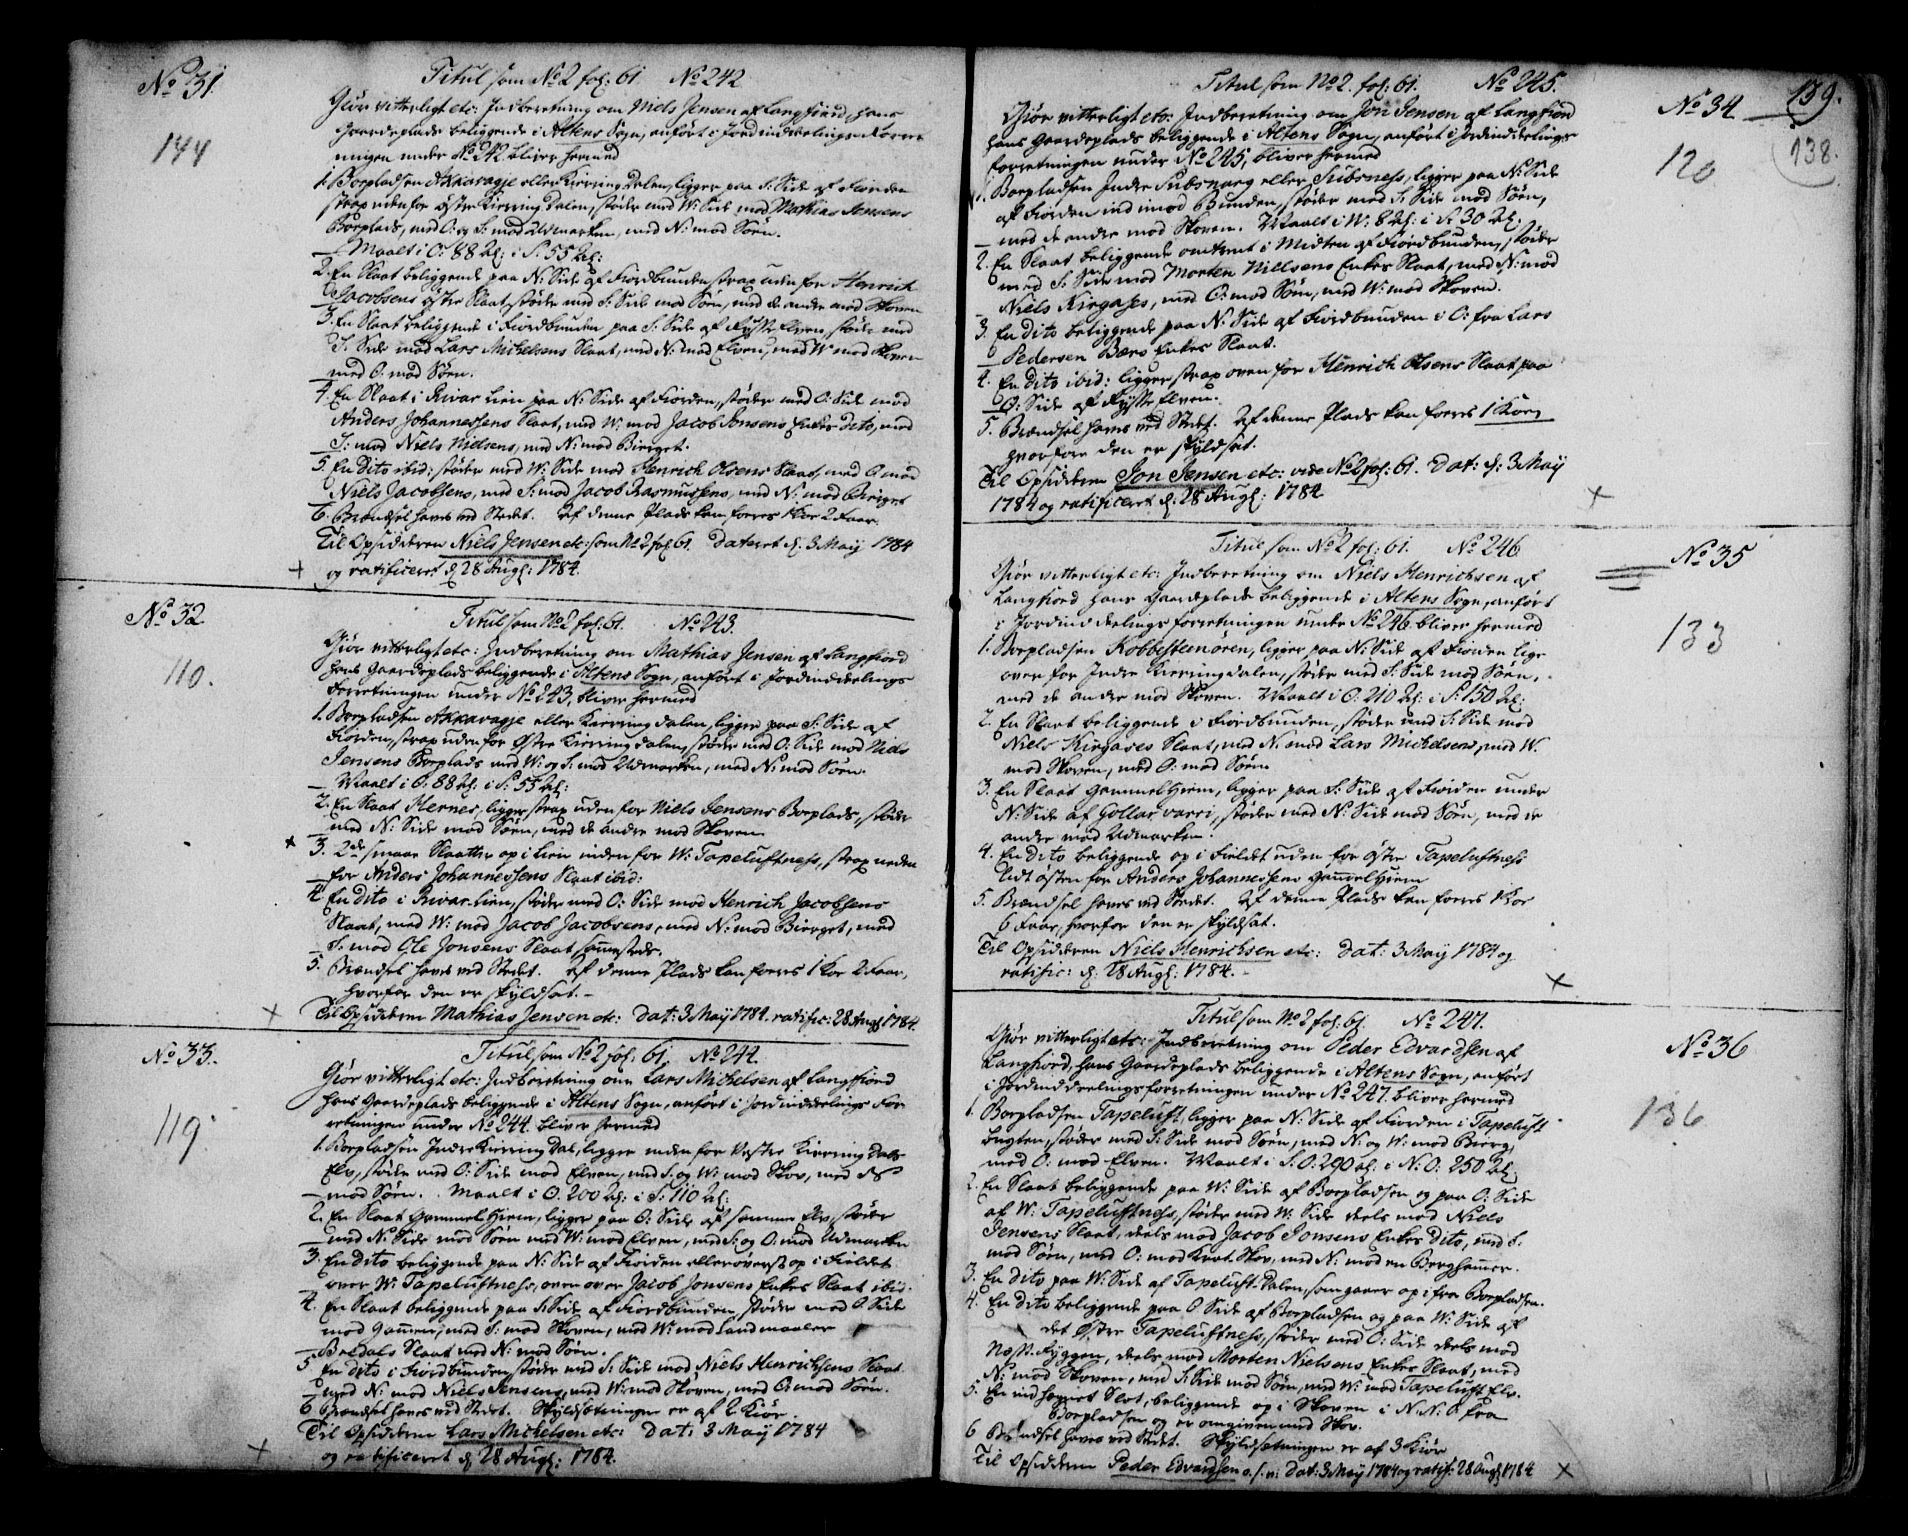 No 31.
144
Titul som No 2 fol: 61 No 242
Giør vitterligt etc: Indberetning om Niels Jensen af Langfiord, hans
Gaardeplads beliggende i Altens Sogn, anført i Jordinddelings Forret
ningen under No 242 bliver hermed
1. Boepladsen Akkavagje eller Kierringdalen, ligger paa S: Side af Fiorden
strax uden for østre Kierringdalen, støder med W: Side mod Mathias Jensens
Boeplads, med O: og S: mod Udmarken, med N: mod Søen.
Maalt i O: 88 Al: i S: 55 Al:
2. En Slaat beliggende paa N: Side af Fiordbunden strax uden for Henrich
Jacobsens østre Slaat, støder med S: Side mod Søen, med de andre mod Skoven
3. En Slaat beliggende i Fiordbunden paa S: Side af Elven, støder med
S: Side mod Lars Michelsens Slaat, med N: mod Elven, med W: mod Skoven
med O: mod Søen.
4. En Slaat i Rivar Lien paa N: Side af Fiorden, støder med O: Side mod
Anders Johannessens Slaat, med W: mod Jacob Jonsens Enkes dito, med
S: mod Niels Nielsens, med N: mod Bierget.
5. En Dito ibid: støder med W: Side mod Henrich Olsens Slaat, med O: mod
Niels Jacobsens, med S: mod Jacob Rasmussens, med N: mod Bierget
6. Brændsel haves ved Stedet. Af denne Plads kan foeres 1 Koe 2 Faar.
Til Opsidderen Niels Jensen etc: som No 2 fol: 61. Dateret d. 3 May 1784
og ratificeret d. 28 Augl: 1784.
No 32
110.
Titul som No 2 fol: 61. No 243.
Giør vitterligt etc: Indberetning om Mathias Jensen af Langfiord
hans Gaardeplads beliggende i Altens Sogn, anført i Jordinddelings
Forretningen under No 243, bliver hermed
1. Boepladsen Akkavagje eller Kierringdalen, ligger paa S: Side af
Fiorden, strax uden for Østre Kierringdalen, støder med O: Side mod Niels
Jensens Boeplads med W: og S: mod Udmarken, med N: mod Søen.
Maalt i O: 88 Al: i S: 55 Al:
2. En Slaat Hernes, ligger strax uden for Niels Jensens Boeplads, støder
med N: Side mod Søen, med de andre mod Skoven
3. 2de smaae Slaatter op i Lien inden for W: Tapeluftness, strax neden
for Anders Johannessens Slaat ibid:
4. En Dito i Rivar Lien, støder med O: Side mod Henrich Jacobsens
Slaat, med W: mod Jacob Jacobsens, med N: mod Bierget, med
S: mod Ole Jonsens Slaat sammesteds.
5. Brændsel haves ved Stedet. Af denne Plads kan foeres 1 Koe 2 Faar,
hvorfor den er skyldsat. –
Til Opsidderen Mathias Jensen etc: Dat: 3 May 1784. ratific: 28 Augl 1784.
No 33.
119.
Titul som No 2 fol: 61. No 244.
Giør vitterligt etc: Indberetning om Lars Michelsen af Langfiord
hans Gaardeplads beliggende i Altens Sogn, anført i Jordinddelings For
retningen under No 244. bliver hermed
1. Boepladsen Indre Kierring Dal, ligger inden for Vestre Kierring Dals
Elv, støder med O: Side mod Elven, med S: og W: mod Skov, med N
mod Søen. Maalt i O. 200 Al: i S: 110 Al:
2. En Slaat Gammel Hiem, ligger paa O: Side af samme Elv, støder
med N: Side mod Søen med W: mod Elven, med S: og O: mod Udmarken
3. En Dito beliggende paa N: Side af Fiorden øverst op i Fieldet
over W: Tapeluftness, oven over Jacob Jonsens Enkes Slaat ibid.
4. En Slaat beliggende paa S: Side af Fiordbunden, støder med O: Side
mod Gammen, med S: mod Skoven, med W: mod Landmaaler
Boedals Slaat med N: mod Søen.
5. En Dito i Fiordbunden, støder med S: Side mod Niels Henrichsens Slaat
med N: mod Niels Jensens, med W: mod Skoven, med O: mod Søen.
6. Brændsel haves ved Stedet. Skyldsetningen er af 2 Kiør.
Til Opsidderen Lars Michelsen etc: Dat: 3 May 1784
og ratificeret d. 28 Augl: 1784.
139.
138.
No 34
120
Titul som No 2. fol: 61. No 245.
Giør vitterligt etc: Indberetning om Jon Jensen af Langfiord
hans Gaardeplads beliggende i Altens Sogn, anført i Jordinddelings
forretningen under No 245, bliver hermed
1. Boepladsen Indre Subsnarg eller Subsness, ligger paa N: Side
af Fiorden ind imod Bunden, støder med S: Side mod Søen,
med de andre mod Skoven. Maalt i W: 8 Al: i S: 30 Al.
2. En Slaat beliggende omtrent i Midten af Fiordbunden, støder
med S: Side mod Morten Nielsens Enkes Slaat, med N: mod
Niels Kirgases, med O: mod Søen, med W: mod Skoven.
3. En Dito beliggende paa N: Side af Fiordbunden i O: fra Lars
Pedersen Bæes Enkes Slaat.
4. En Dito ibid: ligger strax oven for Henrich Olsens Slaat paa
O: Side af Elven.
5. Brændsel haves ved Stedet. Af denne Plads kan foeres 1 Koe
hvorfore den er skyldsat.
Til Opsidderen Jon Jensen etc: vide No 2 fol: 61. Dat: d: 3 May
1784 og ratificeret d: 28 Augl: 1784.
No 35
133
Titul som No 2 fol: 61. No 246
Giør vitterligt etc: Indberetning om Niels Henrichsen af
Langfiord hans Gaardeplads beliggende i Altens Sogn, anført
i Jordinddelings forretningen under No 246. bliver hermed
1. Boepladsen Kobbesteenøren, ligger paa N: Side af Fiorden lige
over for Indre Kierringdalen, støder med S: Side mod Søen,
med de andre mod Skoven. Maalt i O: 210 Al: i S: 150 Al:
2. En Slaat beliggende i Fiordbunden, støder med S: Side mod
Niels Kirgases Slaat, med N: mod Lars Michelsens, med W.
mod Skoven, med O: mod Søen
3. En Slaat Gammel Hiem, ligger paa S: Side af Fiorden under
N: Side af Gollar varri, støder med N: Side mod Søen, med de
andre mod Udmarken.
4. En Dito beliggende op i Fieldet uden for østre Tapeluftness
lidt østen for Anders Johannessens Gammel Hiem
5. Brændsel haves ved Stedet. Af denne Plads kan foeres 1 Koe
6 Faar, hvorfor den er skyldsat.
Til Opsidderen Niels Henrichsen etc: Dat: 3 May 1784 og
ratific: d: 28 Augl: 1784. –
No 36
136
Titul som No 2 fol: 61. No 247.
Giør vitterligt etc: Indberetning om Peder Edvardsen af
Langfiord, hans Gaardeplads beliggende i Altens Sogn, anført
i Jordinddelingsforretningen under No 247. bliver hermed
1. Boepladsen Tapeluft, ligger paa N: Side af Fiorden i Tapeluft
bugten, støder med S: Side mod Søen, med N: og W: mod Bierg,
med O: mod Elven. Maalt i S: O: 290 Al: i N: O: 250 Al:
2. En Slaat beliggende paa W: Side af Boepladsen og paa O: Side
af W: Tapeluftness, støder med W: Side deels mod Niels
Jensens Slaat, deels mod Jacob Jonsens Enkes Dito, med S.
mod Søen, med O: mod Krat Skov, med N: mod en Berghammer.
3. En Dito paa W: Side af Tapeluft Dalen, som gaaer op i fra Boepladsen.
4. En Dito beliggende paa O Side af Boepladsen og paa W: Side af
det Østre Tapeluftness, støder med O: Side deels mod
Næss Ryggen, deels mod Morten Nielsens Enkes Slaat, med
N: mod Skoven, med S: Side mod Søen, med W: mod Tapeluft Elv.
5. En indhegnet Slot, beliggende op i Skoven i N: N: O: fra
Boepladsen og er omgiven med Skov.
6 Brændsel haves ved Stedet. Skyldsetningen er af 3 Kiør
Til Opsidderen Peder Edvardsen e. s. v: Dat: 3 May 1784 og ratif: 28 Augl 1784